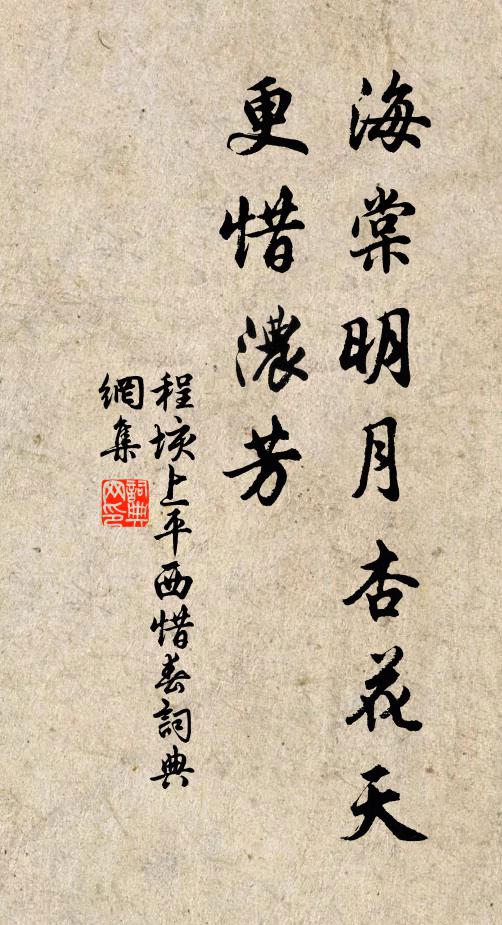 海棠明月杏花天
更惜濃芳
程垓上平西惜春詞典
網集
詞典网印